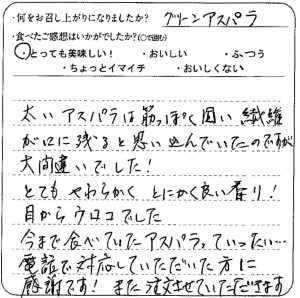 ・何をお召し上がりになりましたか? グリーンアスパラ
・食べたご感想はいかがでしたか?(○で囲む)
・とっても美味しい! ・おいしい ・ふつう
・ちょっとイマイチ ・おいしくない
太いアスパラは筋っぽく固い繊維
が口に残ると思い込んでいたのですが
大間違いでした!
とてもやわらかく とにかく良い香り!
目からウロコでした
今まで食べていたアスパラっていったい…
電話で対応していただいた方に
感謝です! また注文させていただきます